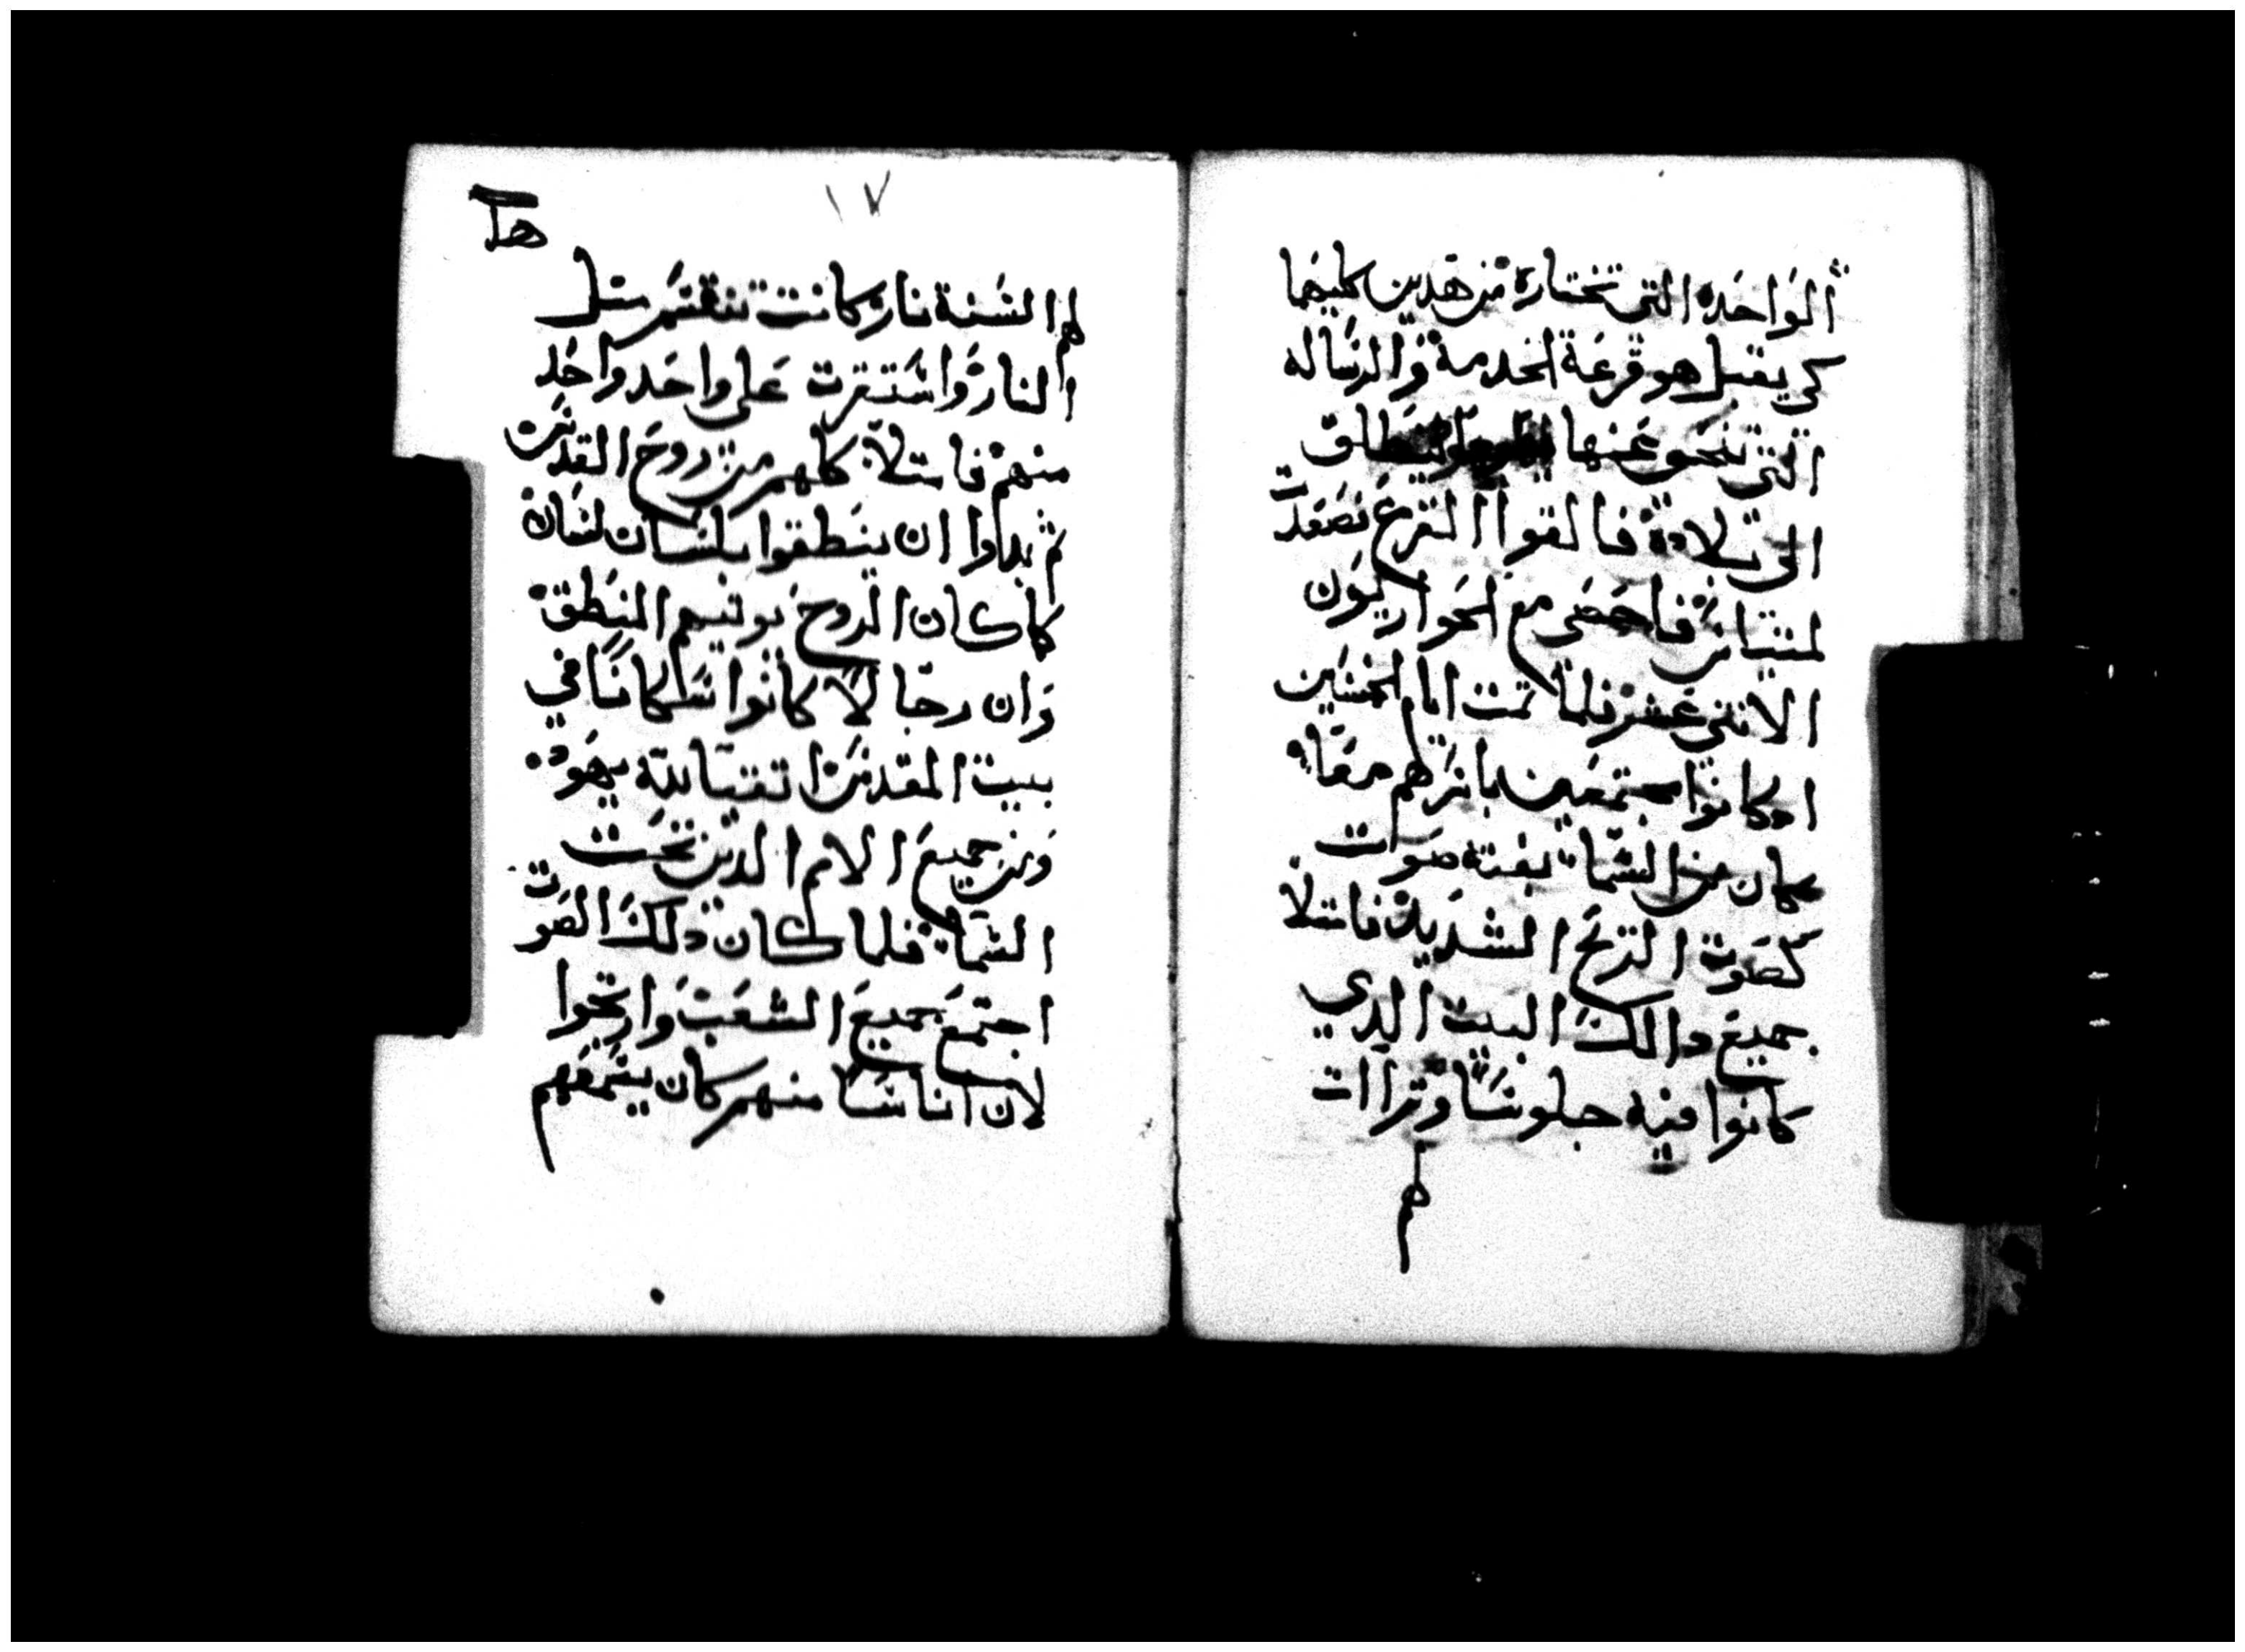 الواحده التي تختاره من هدين كليهما
كي يقبل هو قرعة الخدمة والرساله
التي تنحو عنها لينطلق
الى بلاده فالقوا القرع فصعدت
لمتياس فاحصي مع الحواريون
الاثني عشر فلما تمت ايام الخمسين
اد كانوا مجتمعين باسرهم معا
فكان من السما بغته صوت
كصوت الريح الشديد فامتلا
جميع دالك البيت الدي
كانوا فيه جلوسا وتراات
لهم
١٧
لهم السنة نار كانت تنقسم مثل
النار واستقرت على واحد واحد
منهم فامتلا كلهم من روح القدس
ثم بداوا ان ينطقوا بلسان لسان
كما كان الروح يوتيهم النطق
وان رجالا كانوا سكانا في
بيت المقدس اتقيا لله يهود
ومن جميع الامم الدين تحت
السما فلما كان دلك الصوت
اجتمع جميع الشعب وارتجوا
لان اناسا منهم كان يسمعهم